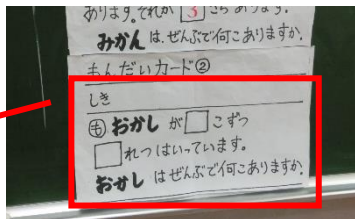 あります。それが 3 こらあります。
みかんは、ぜんぶで何こありますか。
もんだいカード②
しき
も おかしが□こずつ
□れつはいっています。
おかしはぜんぶで何こありますか。